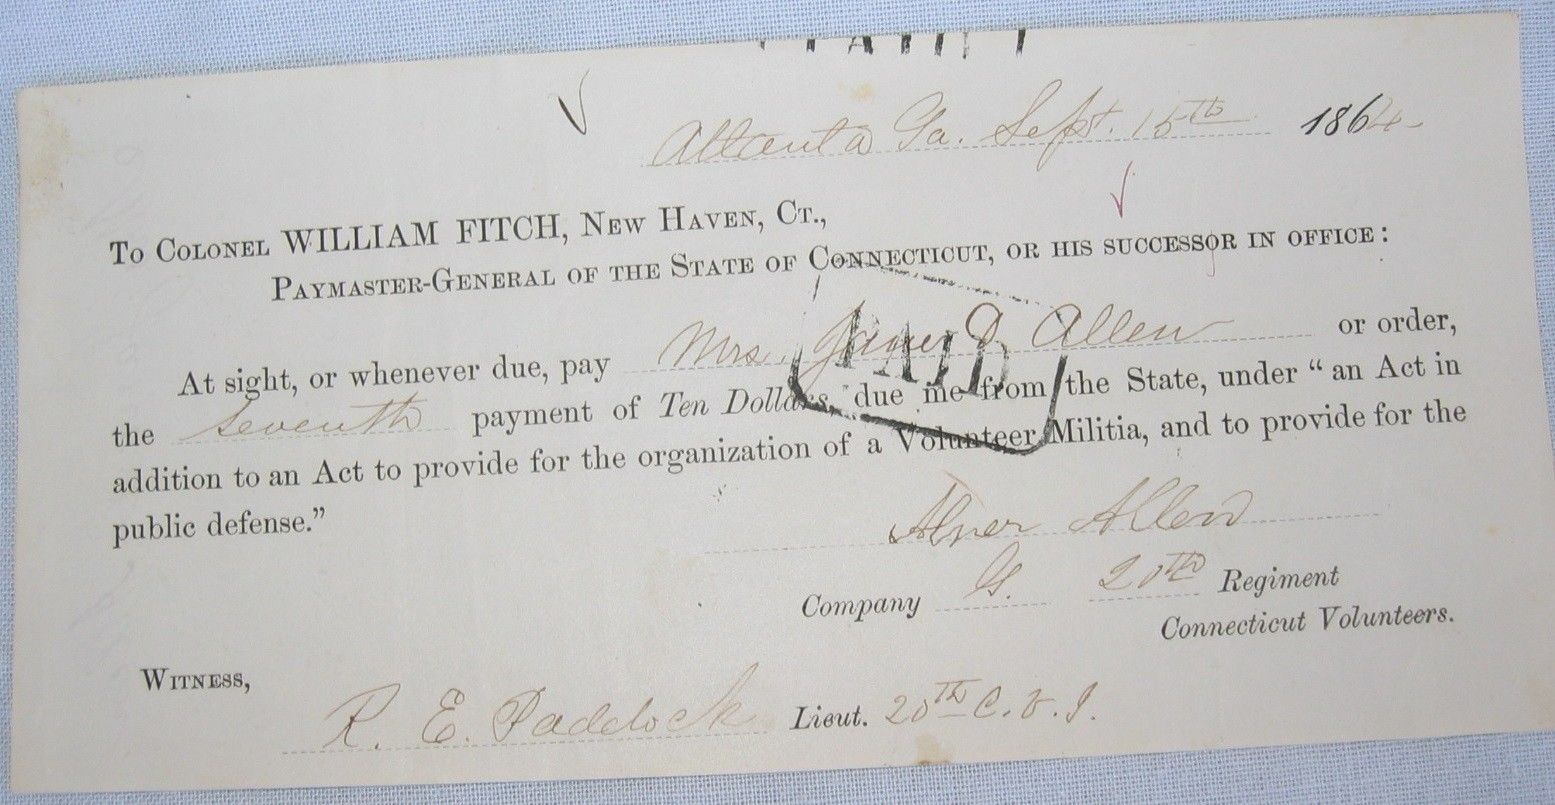 Atlanta Ga. Sept. 15th 1864
To Colonel WILLIAM FITCH, New Haven, Ct.,
Paymaster-General of the State of Connecticut, or his successor in office:
At sight, or whenever due, pay Mrs. Jane D Allen or order,
the seventh payment of Ten Dollars, due me from the State, under "an Act in
addition to an Act to provide for the organization of a Volunteer Militia, and to provide for the
public defense."
PAID
Abner Allen
Company G. 20th Regiment
Connecticut Volunteers.
Witness,
R. E. Paddock Lieut. 20th C. V. I.